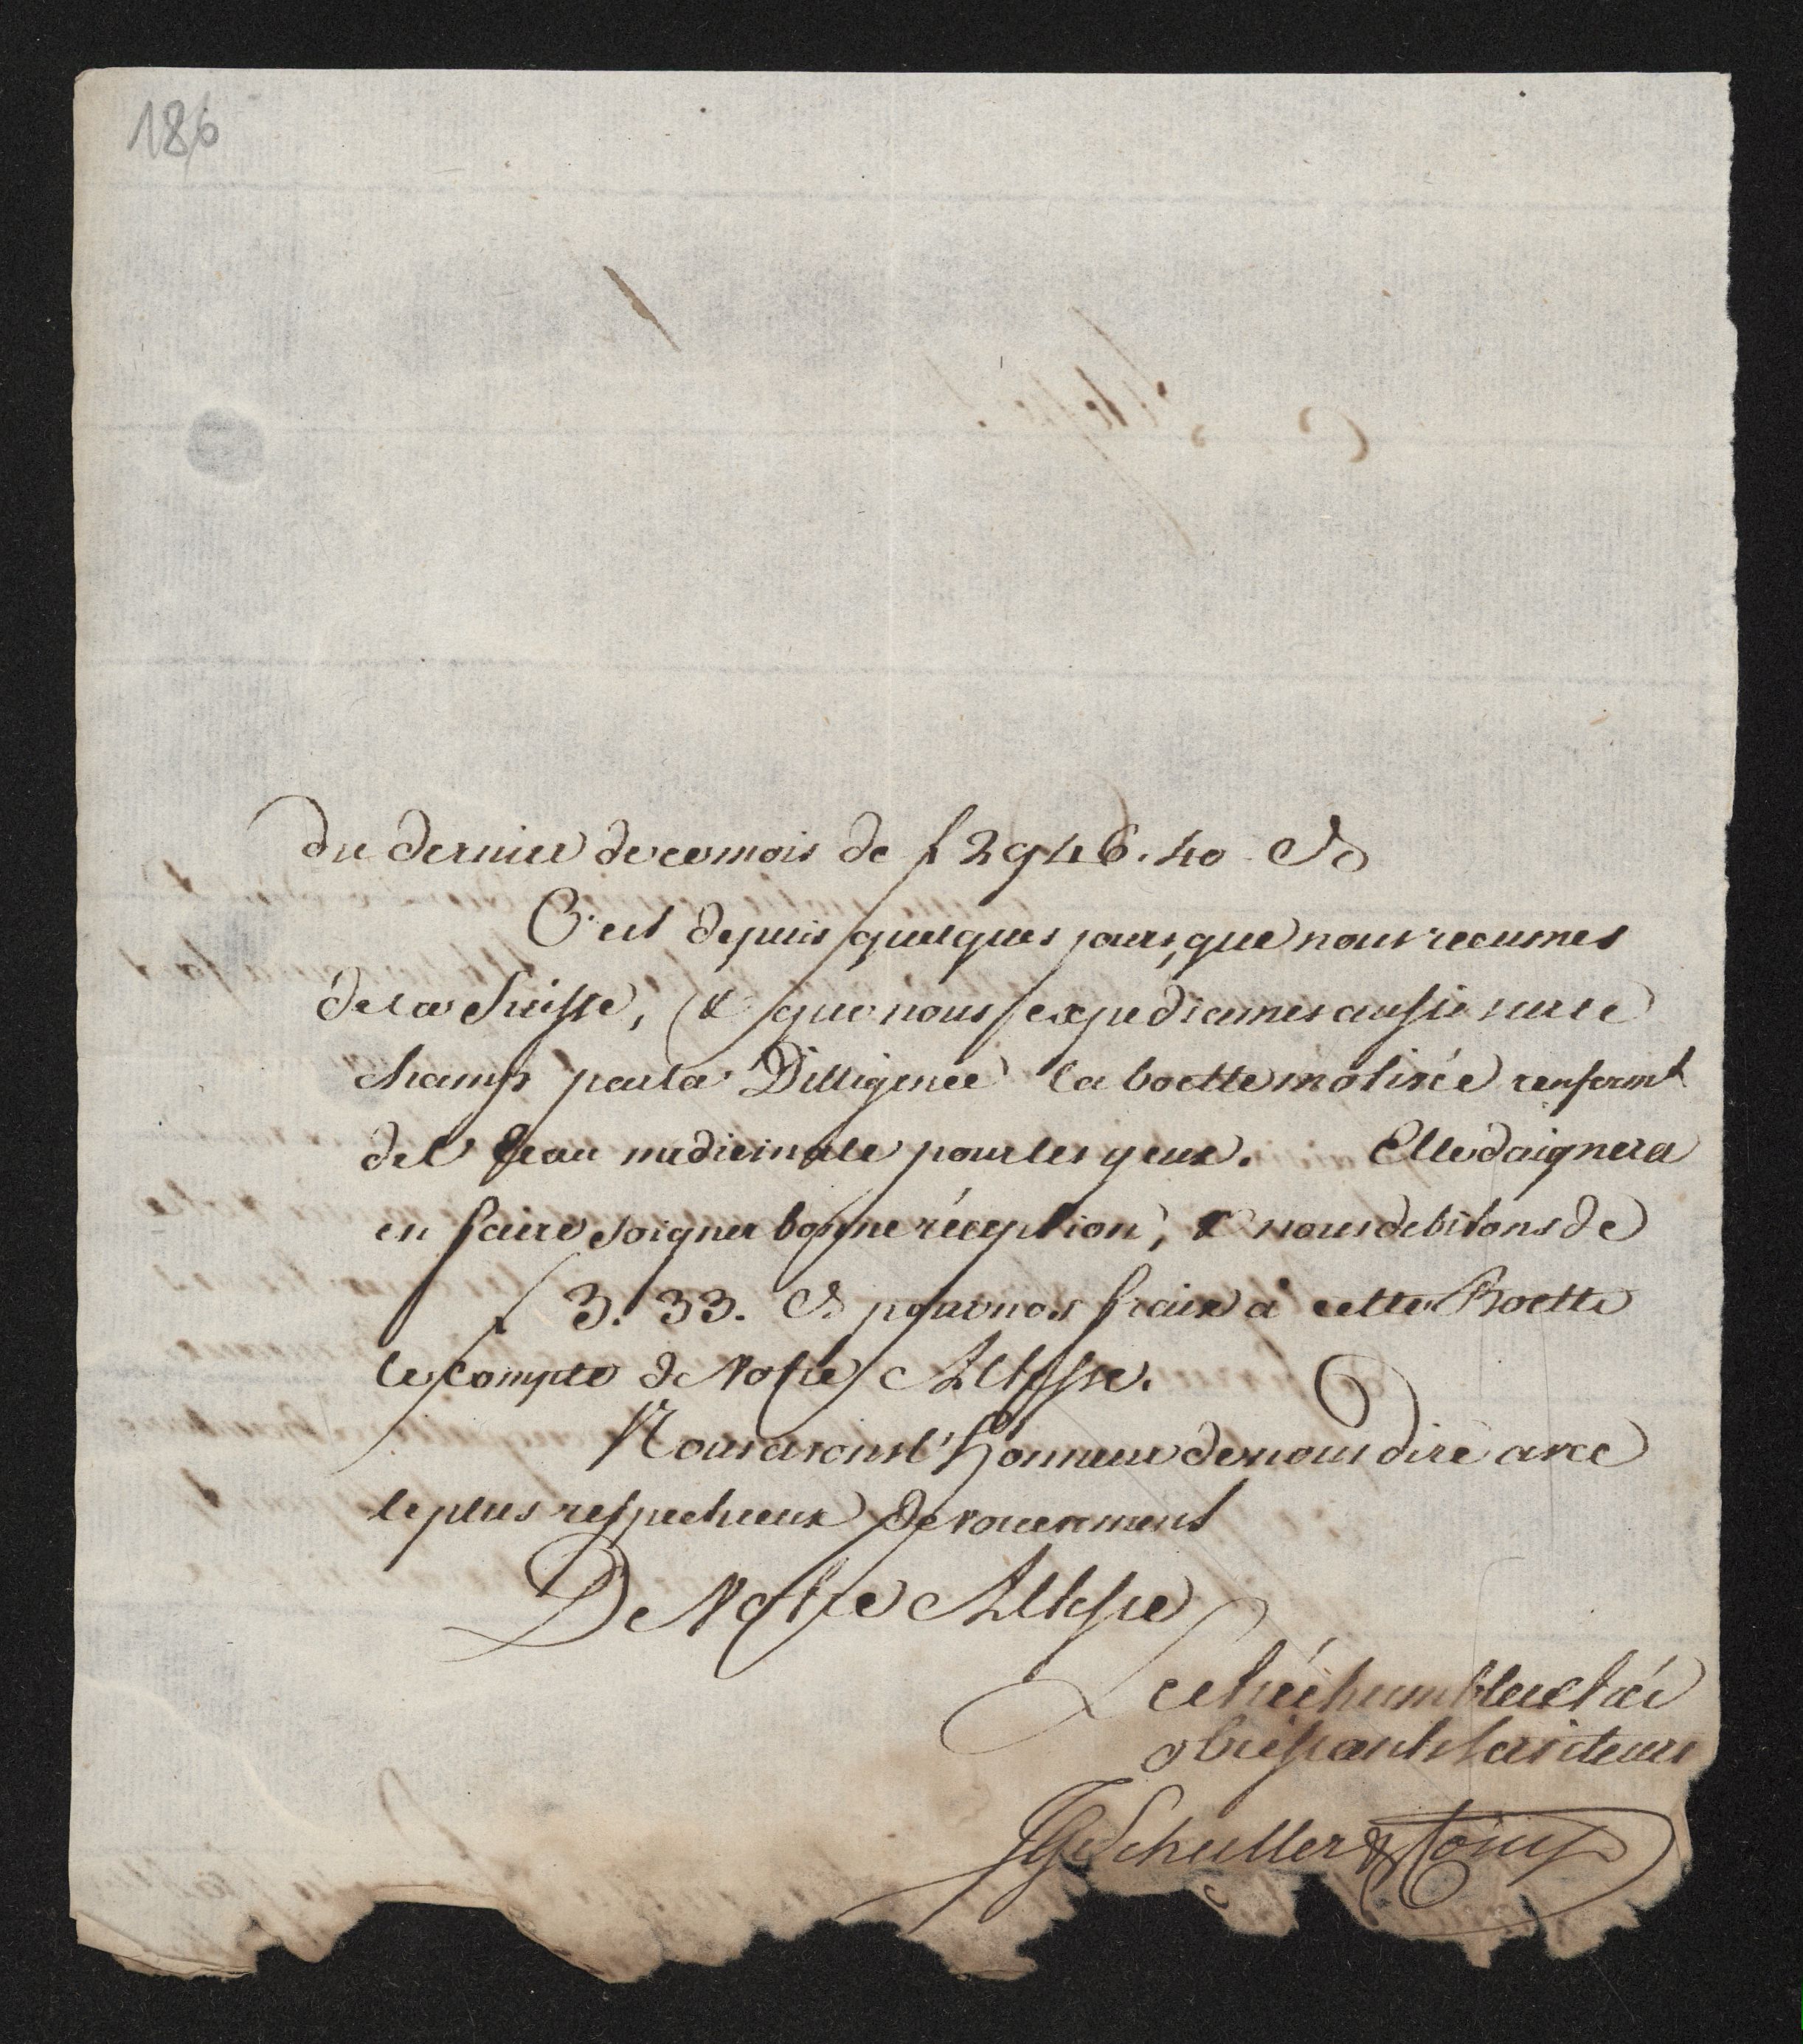 186
du dernier de ce mois de f 2946.40 Cs
C'est depuis quelques jours, que nous recumes
de la Suisse, & que nous expediames aussi sur le
champ par la Dilligence la boette motivée renfermt
de l'Eau medicinale pour les yeux. Elle daignera
en faire soigner bonne réception, & nous debitons de
f 3.33. Cs pour nos fraix à cette Boette
le compte de Votre Altesse.
Nous avons l'honneur de nous dire avec
le plus respectueux devouement
De Votre Altesse
Les très humbles et très
obéissants serviteurs
JG Schuller & Comp